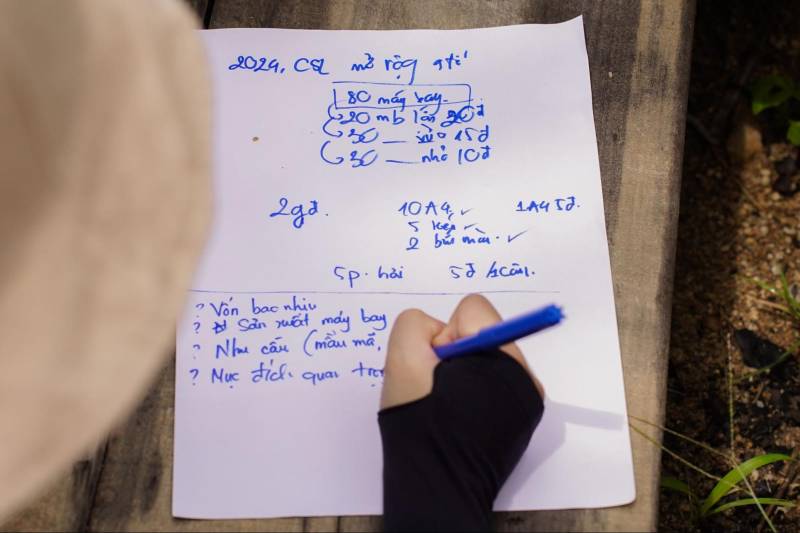 2024, CSL mở rộng
80 máy bay.
20 mb lớn 20đ
30 vừa 15đ
30 nhỏ 10đ
2gđ. 10A4 ✓ 1A4 5đ.
5 kéo ✓
2 bút màu. ✓
5p. hỏi 5đ /1câu.
? Vốn bao nhiu
? Sản xuất máy bay
? Nhu cầu (mẫu mã,
? Mục đích quan trọng